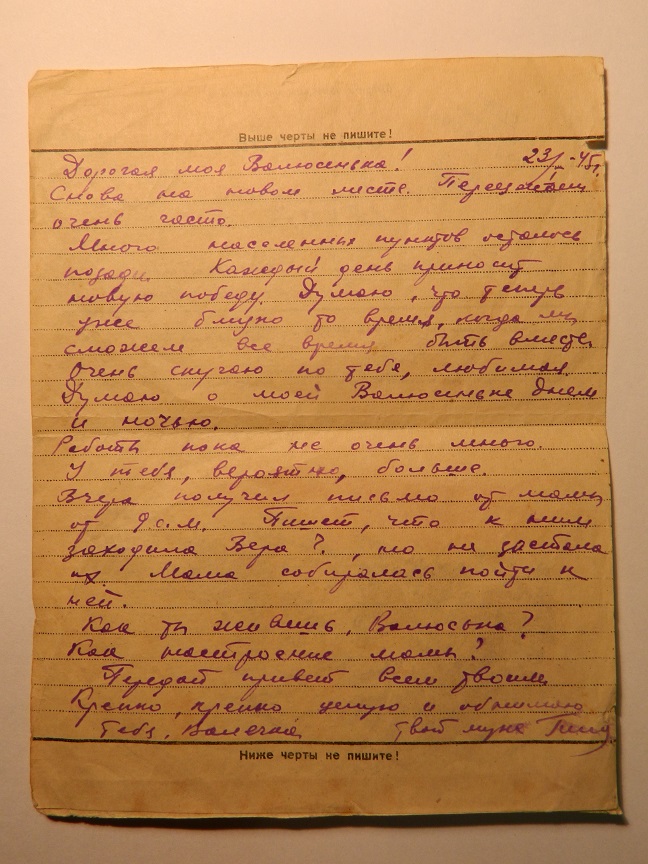 Выше черты не пишите!
Дорогая моя Валюсенька! 23/I-45г.
Снова на новом месте. Переезжаем
очень часто.
Много населенных пунктов осталось
позади. Каждый день приносит
новую победу. Думаю, что теперь
уже близко то время, когда мы
сможем все время быть вместе.
Очень скучаю по тебе, любимая.
Думаю о моей Валюсеньке днем
и ночью.
Работы пока не очень много.
У тебя, вероятно, больше.
Вчера получил письмо от мамы
от 9с.м. Пишет, что к ним
заходила Вера?, но не застала
их. Мама собиралась пойти к
ней.
Как ты живешь, Валюська?
Как настроение мамы?
Передай привет всем твоим
Крепко, крепко целую и обнимаю
тебя, Валечка твой муж
Ниже черты не пишите!